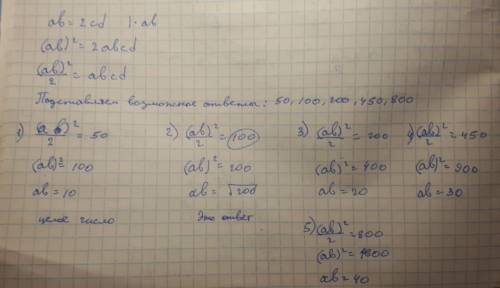 ab = 2cd | · ab
(ab)² = 2abcd
(ab)²/2 = abcd
Подставляем возможные ответы: 50, 100, 200, 450, 800
1) (ab)²/2 = 50
(ab)² = 100
ab = 10
целое число
2) (ab)²/2 = 100
(ab)² = 200
ab = √200
Это ответ
3) (ab)²/2 = 200
(ab)² = 400
ab = 20
4) (ab)²/2 = 450
(ab)² = 900
ab = 30
5) (ab)²/2 = 800
(ab)² = 1600
ab = 40